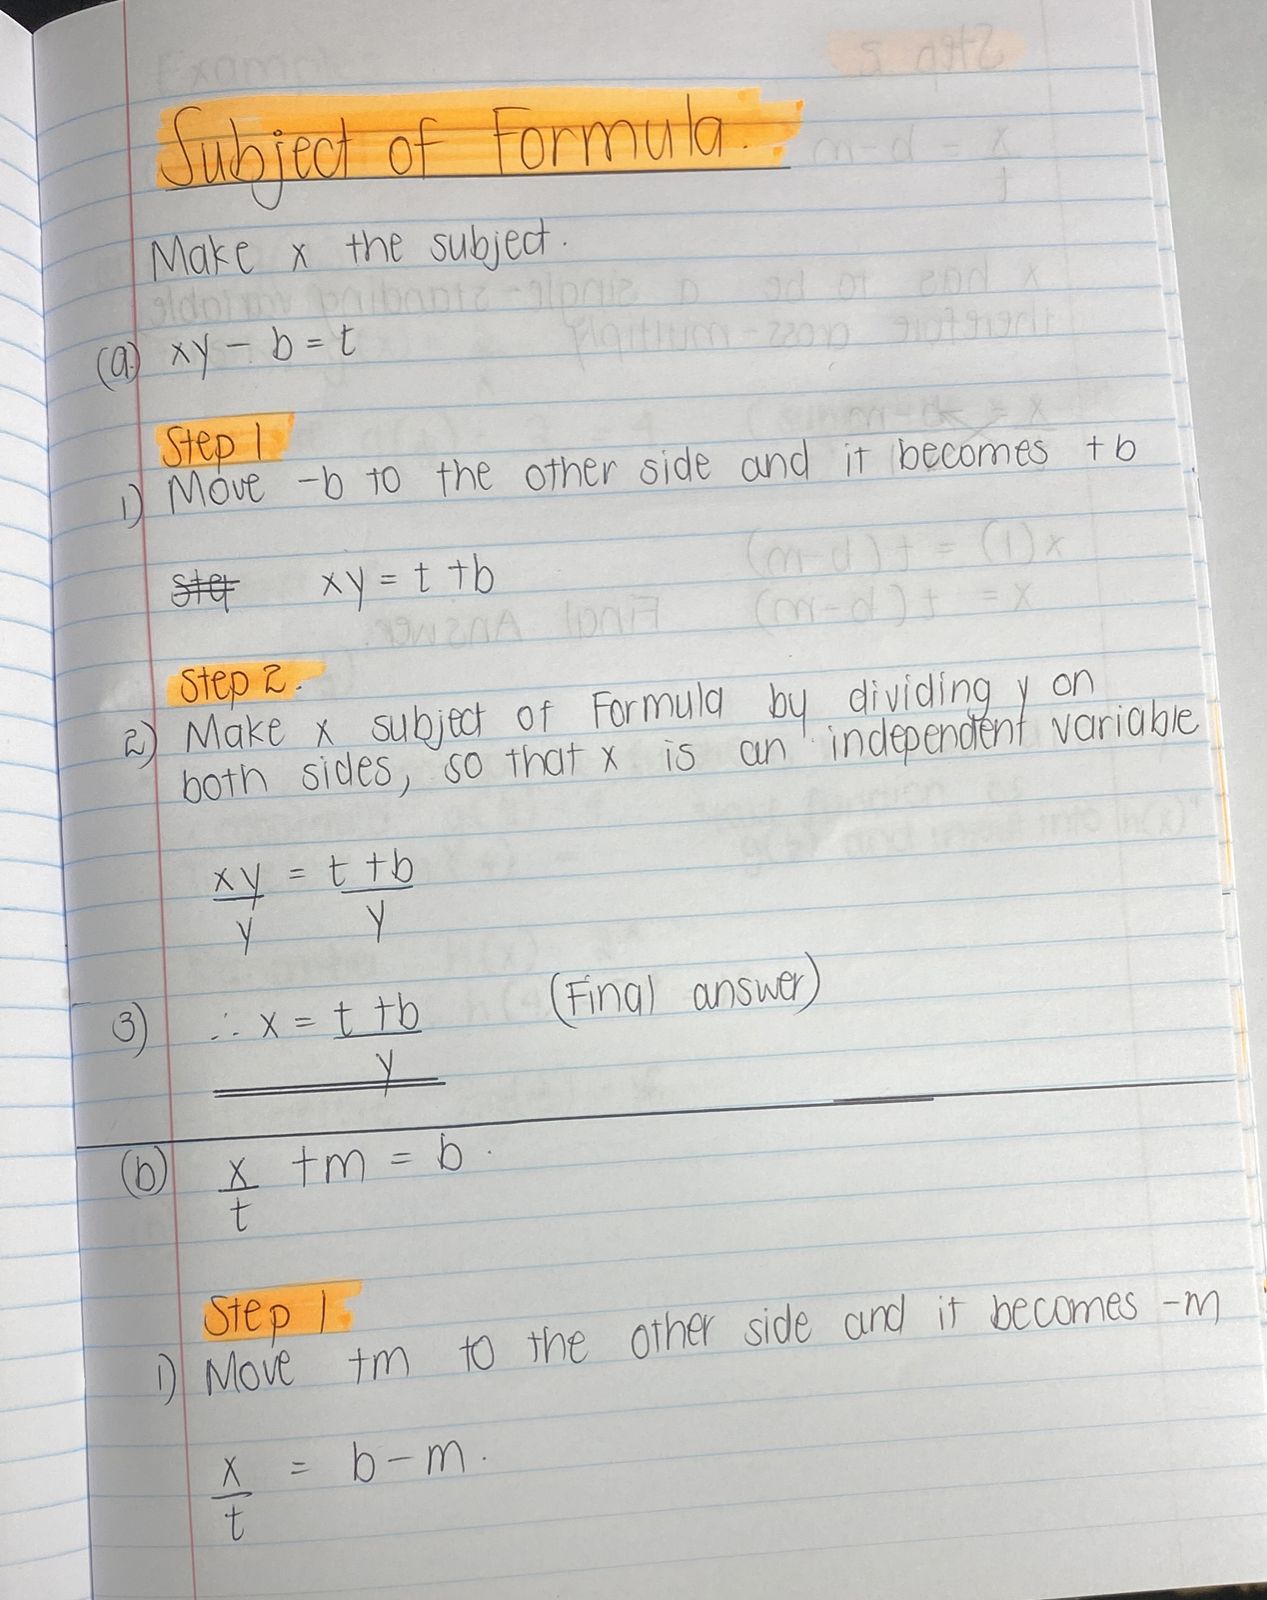 Subject of Formula.
Make x the subject.
(a) xy - b = t
Step 1
1) Move -b to the other side and it becomes +b
Step xy = t + b
Step 2.
2) Make x subject of Formula by dividing y on
both sides, so that x is an independent variable
xy/y = t + b/y
3) ∴ x = t + b/y (Final answer)
(b) x/t + m = b.
Step 1
1) Move +m to the other side and it becomes -m
x/t = b - m.